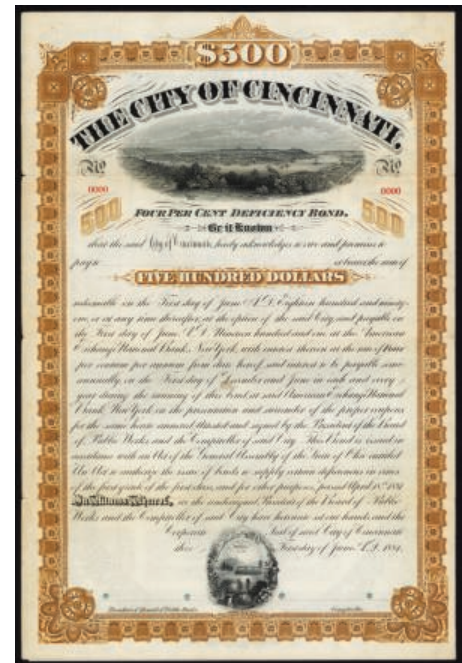 $500
THE CITY OF CINCINNATI.
No No
0000 0000
500 500
FOUR PER CENT DEFICIENCY BOND.
Be it Known
that the said City of Cincinnati, hereby acknowledges to owe and promises to
pay to or bearer the sum of
FIVE HUNDRED DOLLARS
redeemable on the First day of June A.D. Eighteen hundred and ninety
one, or at any time thereafter, at the option of the said City, and payable on
the First day of June A.D. Nineteen hundred and one at the American
Exchange National Bank, New York, with interest thereon at the rate of Four
per centum per annum from date hereof, said interest to be payable semi
annually, on the First day of December and June in each and every
year during the running of this bond at said American Exchange National
Bank New York on the presentation and surrender of the proper coupons
for the same hereto annexed attested and signed by the President of the Board
of Public Works and the Comptroller of said City. This bond is issued in
accordance with an Act of the General Assembly of the State of Ohio entitled
An Act to authorize the issue of bonds to supply certain deficiencies in cities
of the first grade of the first class, and for other purposes, passed April
In Witness Whereof, we the undersigned President of the Board of Public
Works and the Comptroller of said City have hereunto set our hands and the
Corporate Seal of said City of Cincinnati
this First day of June A.D. 1881.
President of Board of Public Works Comptroller